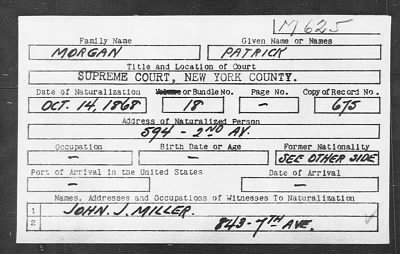 M625
Family Name Given Name or Names
MORGAN PATRICK
Title and Location of Court
SUPREME COURT, NEW YORK COUNTY.
Date of Naturalization Volume or Bundle No. Page No. Copy of Record No.
OCT. 14, 1868 18 — 675
Address of Naturalized Person
594 - 2ND AV.
Occupation Birth Date or Age Former Nationality
— — SEE OTHER SIDE
Port of Arrival in the United States Date of Arrival
— —
Names, Addresses and Occupations of Witnesses To Naturalization
1 JOHN. J. MILLER.
2 843-7TH AVE.